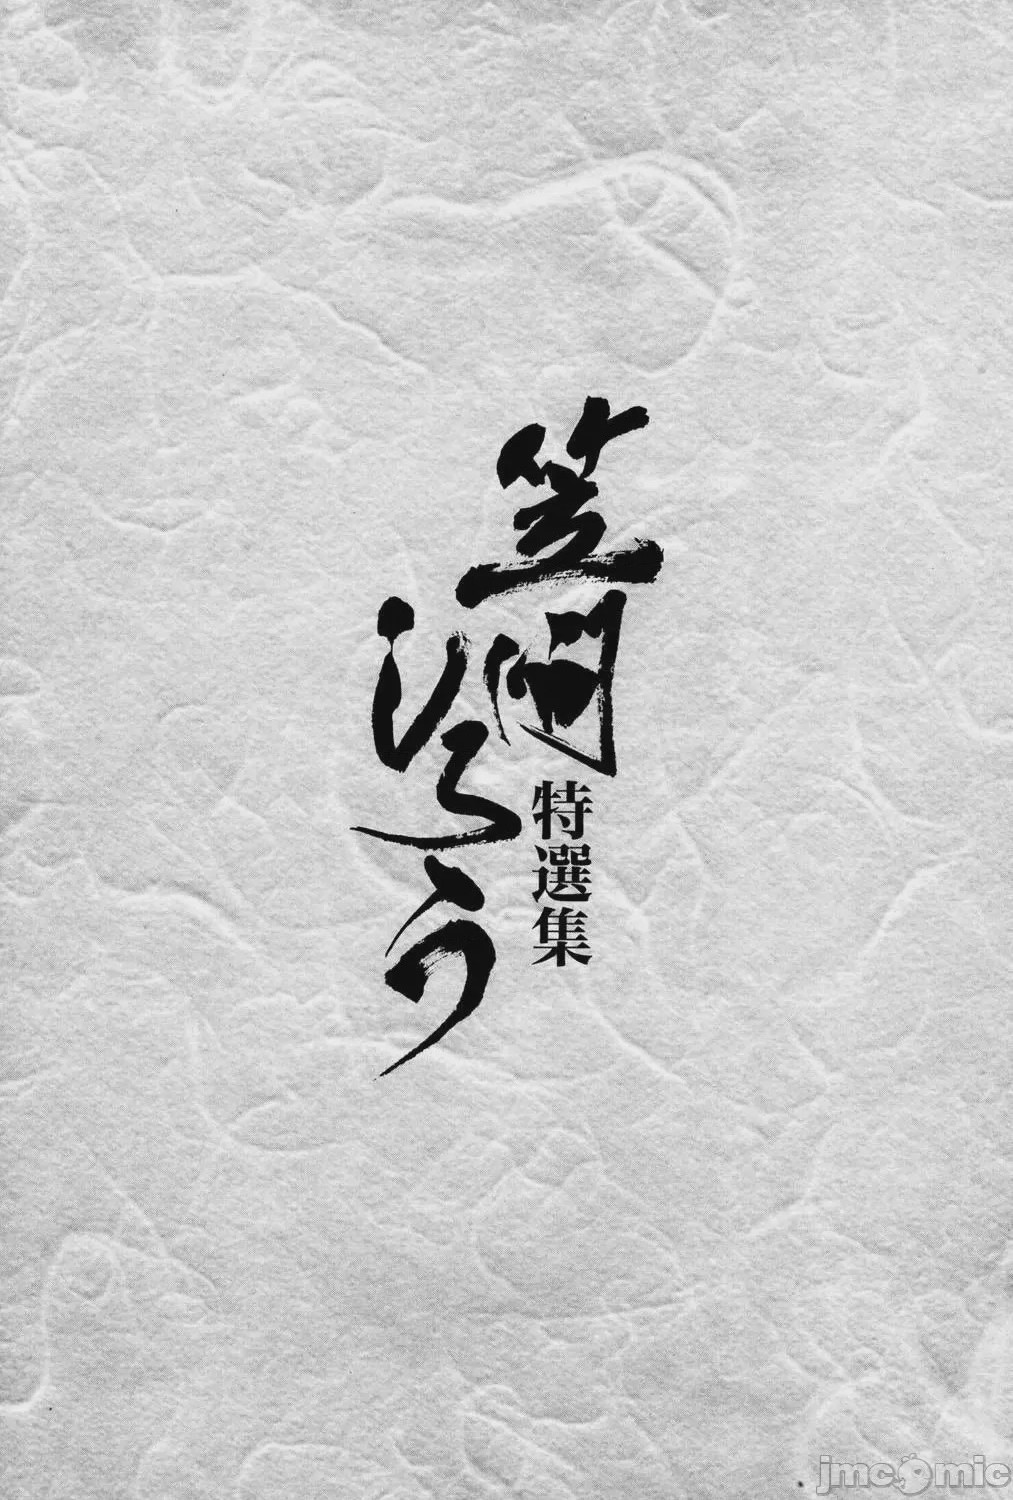 笠間しろう
特選集
jmcomic